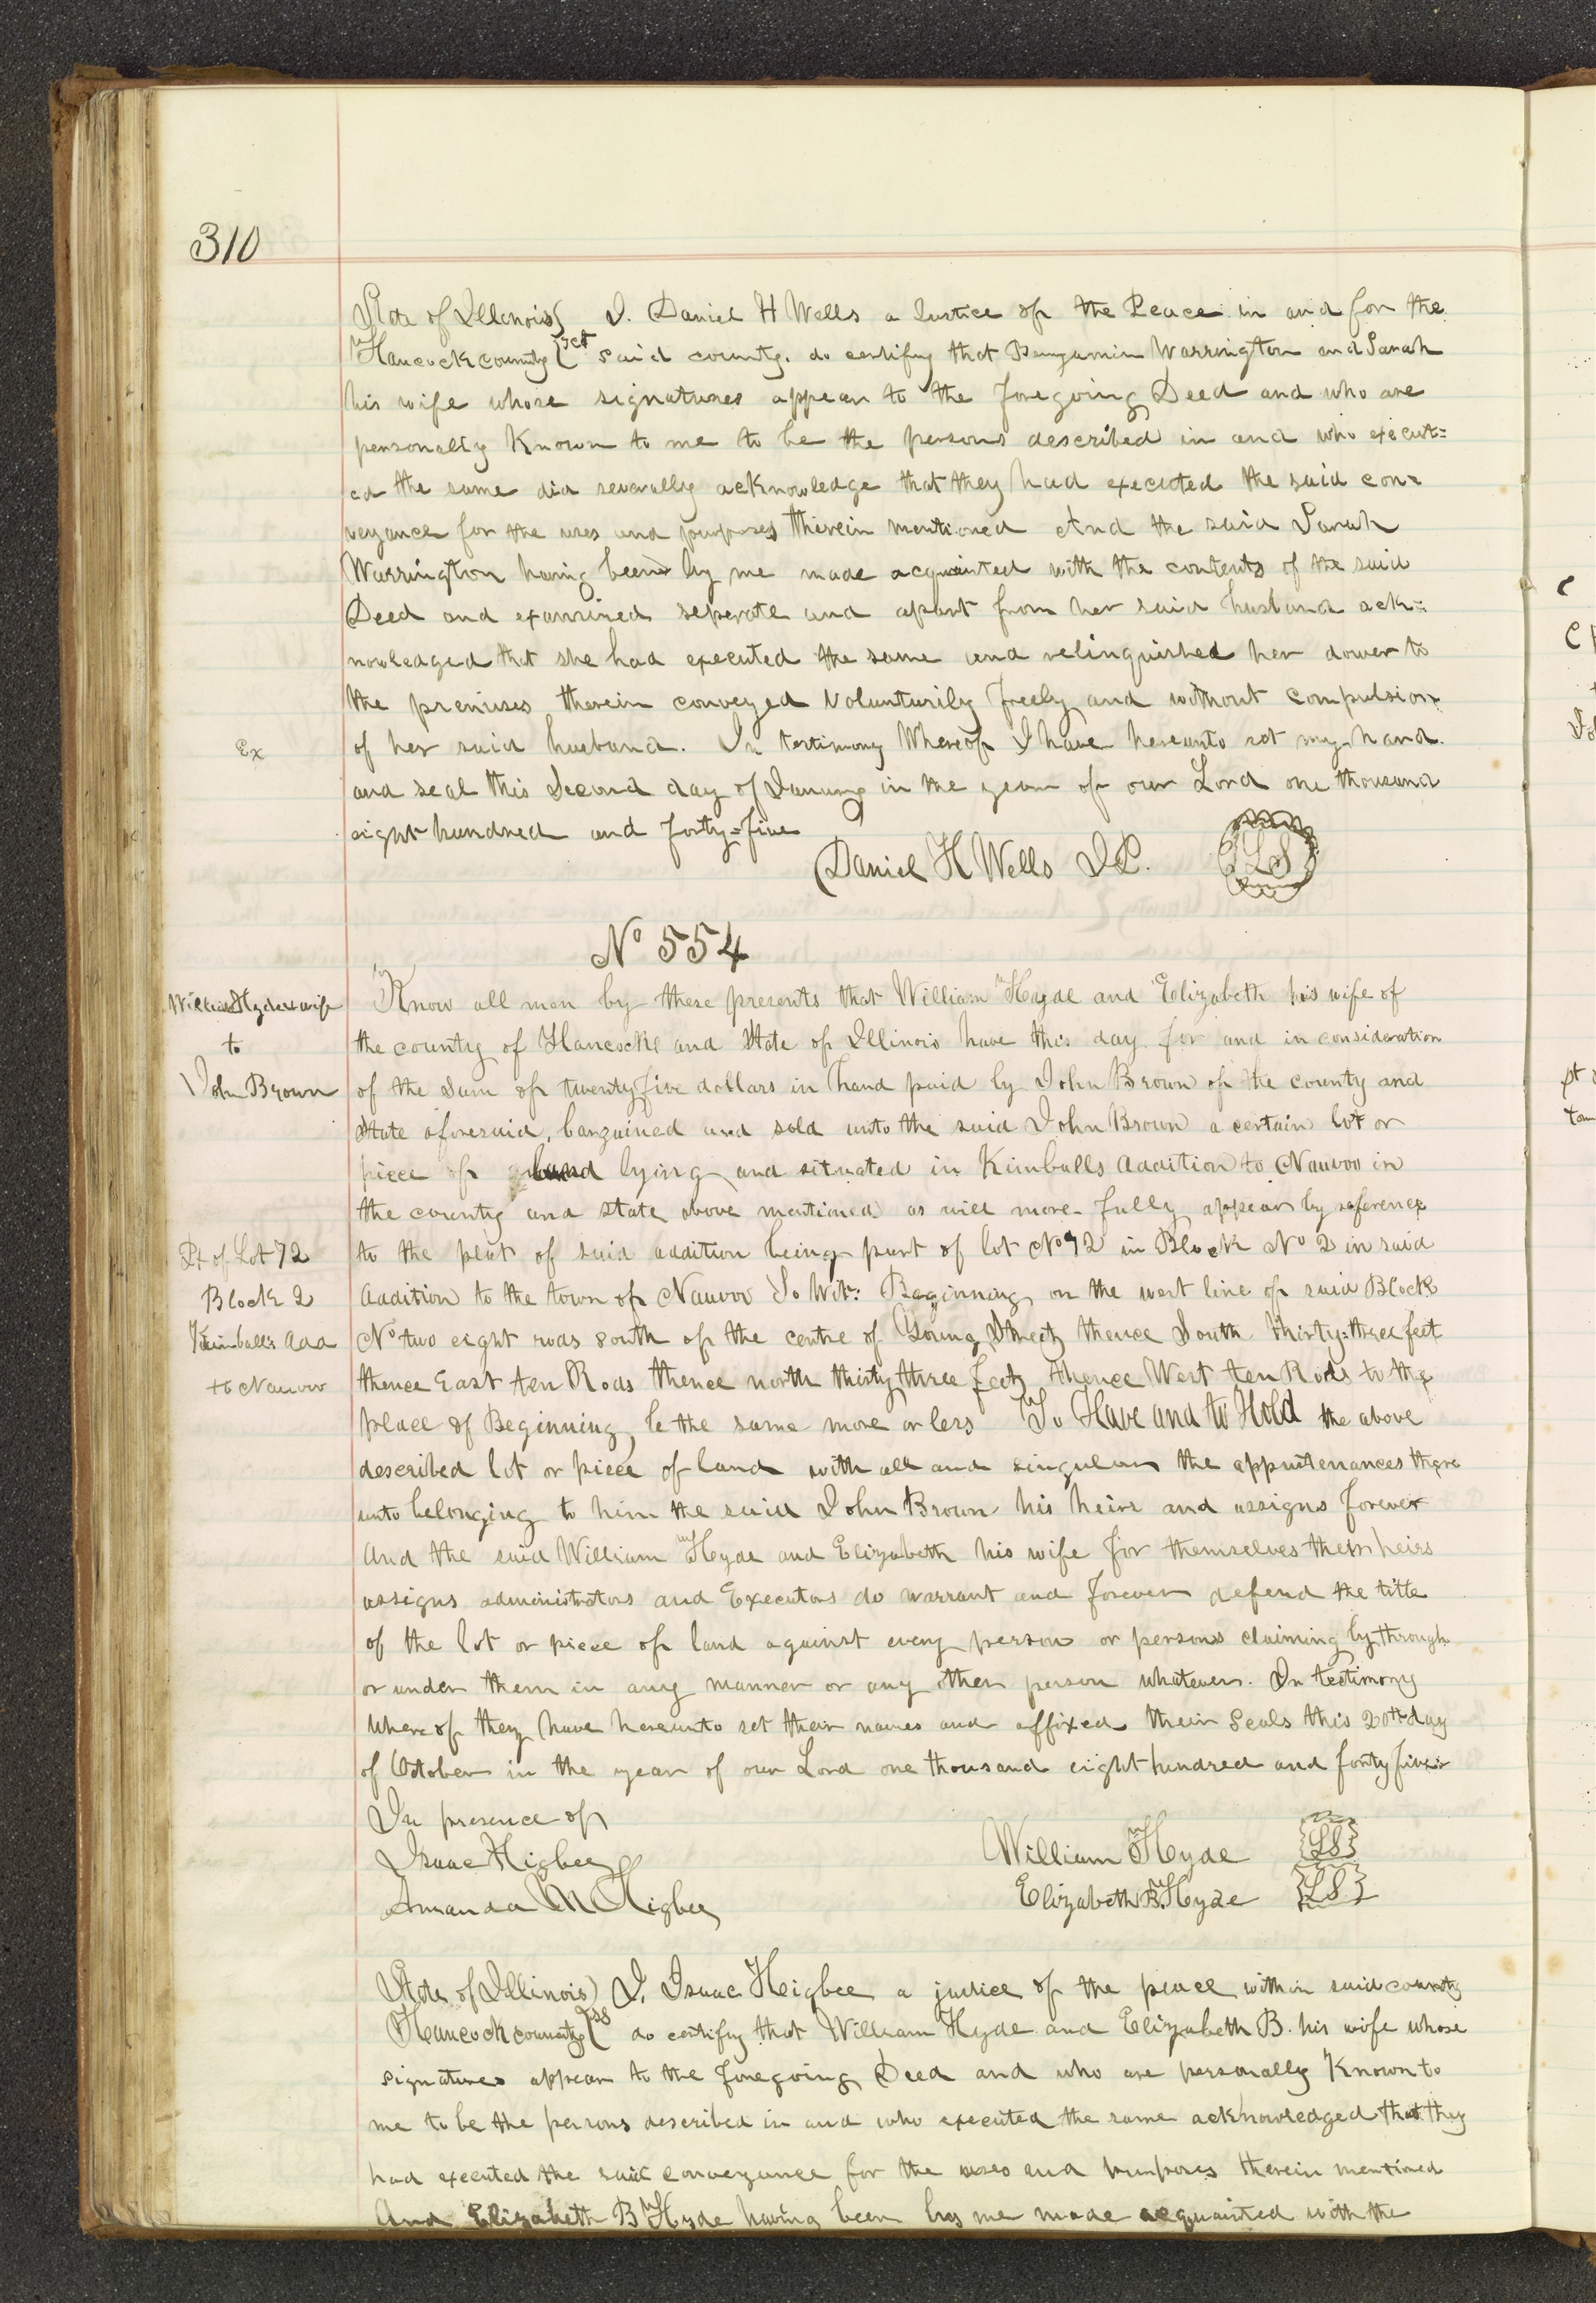 310
State of Illinois } I. Daniel H Wells a Justice of the Peace in and for the
Hancock county } sct said county. do certify that Benjamin Warrington and Sarah
his wife whose signatures appear to the foregoing Deed and who are
personally Known to me to be the persons described in and who execut=
ed the same did severally acknowledge that they had executed the said con=
veyance for the uses and purposes therein mentioned And the said Sarah
Warrington having been by me made acquainted with the contents of the said
Deed and examined seperate and apart from her said husband ack=
nowledged that she had executed the same and relinquished her dower to
the premises therein conveyed Volunturily freely and without compulsion
Ex
of her said husband. In testimony Whereof I have hereunto set my hand
and seal this Second day of January in the year of our Lord one thousand
eight hundred and forty=five
Daniel H Wells J.P. LS
No 554
William Hyde & wife
to
John Brown
Know all men by these presents that William Hyde and Elizabeth his wife of
the county of Hancock and State of Illinois have this day for and in consideration
of the Sum of twenty five dollars in hand paid by John Brown of the county and
State aforesaid, bargained and sold unto the said John Brown a certain lot or
piece of land lying and situated in Kimballs addition to Nauvoo in
the county and state above mentioned as will more fully appear by reference
Pt of Lot 72
Block 2
Kimball's Add
to Nauvoo
to the plat of said addition being part of lot No 72 in Block No 2 in said
addition to the town of Nauvoo To Wit: Beginning on the west line of said Block
No two eight rods south of the centre of Young Street thence South thirty=three feet
thence East ten Rods thence north thirty three feet thence West ten Rods to the
place of Beginning be the same more or less To Have and to Hold the above
described lot or piece of land with all and singular the appurtenances there
unto belonging to him the said John Brown his heirs and assigns forever
And the said William Hyde and Elizabeth his wife for themselves their heirs
assigns administrators and Executors do warrant and forever defend the title
of the lot or piece of land against every person or persons claiming by through
or under them in any manner or any other person whatever. In testimony
whereof they have hereunto set their names and affixed their Seals this 20th day
of October in the year of our Lord one thousand eight hundred and forty five
In presence of
Isaac Higbee William Hyde {LS}
Amanda M Higbee Elizabeth B. Hyde {LS}
State of Illinois } I, Isaac Higbee a justice of the peace within said county
Hancock county } ss do certify that William Hyde and Elizabeth B. his wife whose
signatures appear to the foregoing Deed and who are personally Known to
me to be the persons described in and who executed the same acknowledged that they
had executed the said conveyance for the uses and purposes therein mentioned
And Elizabeth B Hyde having been by me made acquainted with the